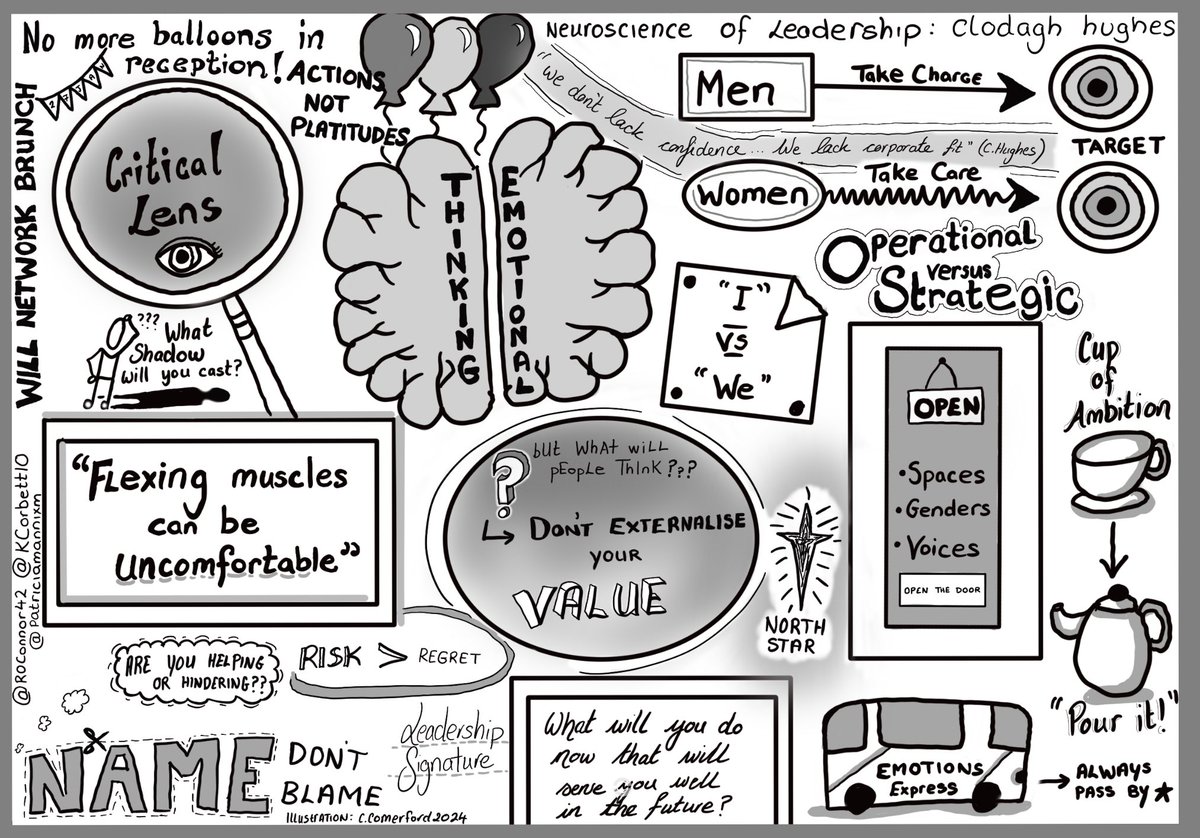 No more balloons in
reception!
ACTIONS
NOT
PLATITUDES
Neuroscience of Leadership: Clodagh hughes
WILL NETWORK BRUNCH
Critical
Lens
"We don't lack
confidence... We lack corporate fit" (C.Hughes)
Men
Take Charge
TARGET
Women
Take Care
THINKING
EMOTIONAL
Operational
versus
Strategic
"I"
Vs
"We"
???
What
Shadow
will you cast?
"Flexing muscles
can be
uncomfortable"
@ROConnor42 @KCorbett10
@Patriciamannixm
but what will
people think???
?
Don't externalise
your
VALUE
NORTH
STAR
OPEN
• Spaces
• Genders
• Voices
OPEN THE DOOR
Cup
of
Ambition
"Pour it!"
ARE YOU HELPING
OR HINDERING??
RISK > REGRET
NAME
DON'T
BLAME
Leadership
Signature
ILLUSTRATION: C.Comerford 2024
What will you do
now that will
serve you well
in the future?
EMOTIONS
Express
ALWAYS
PASS BY